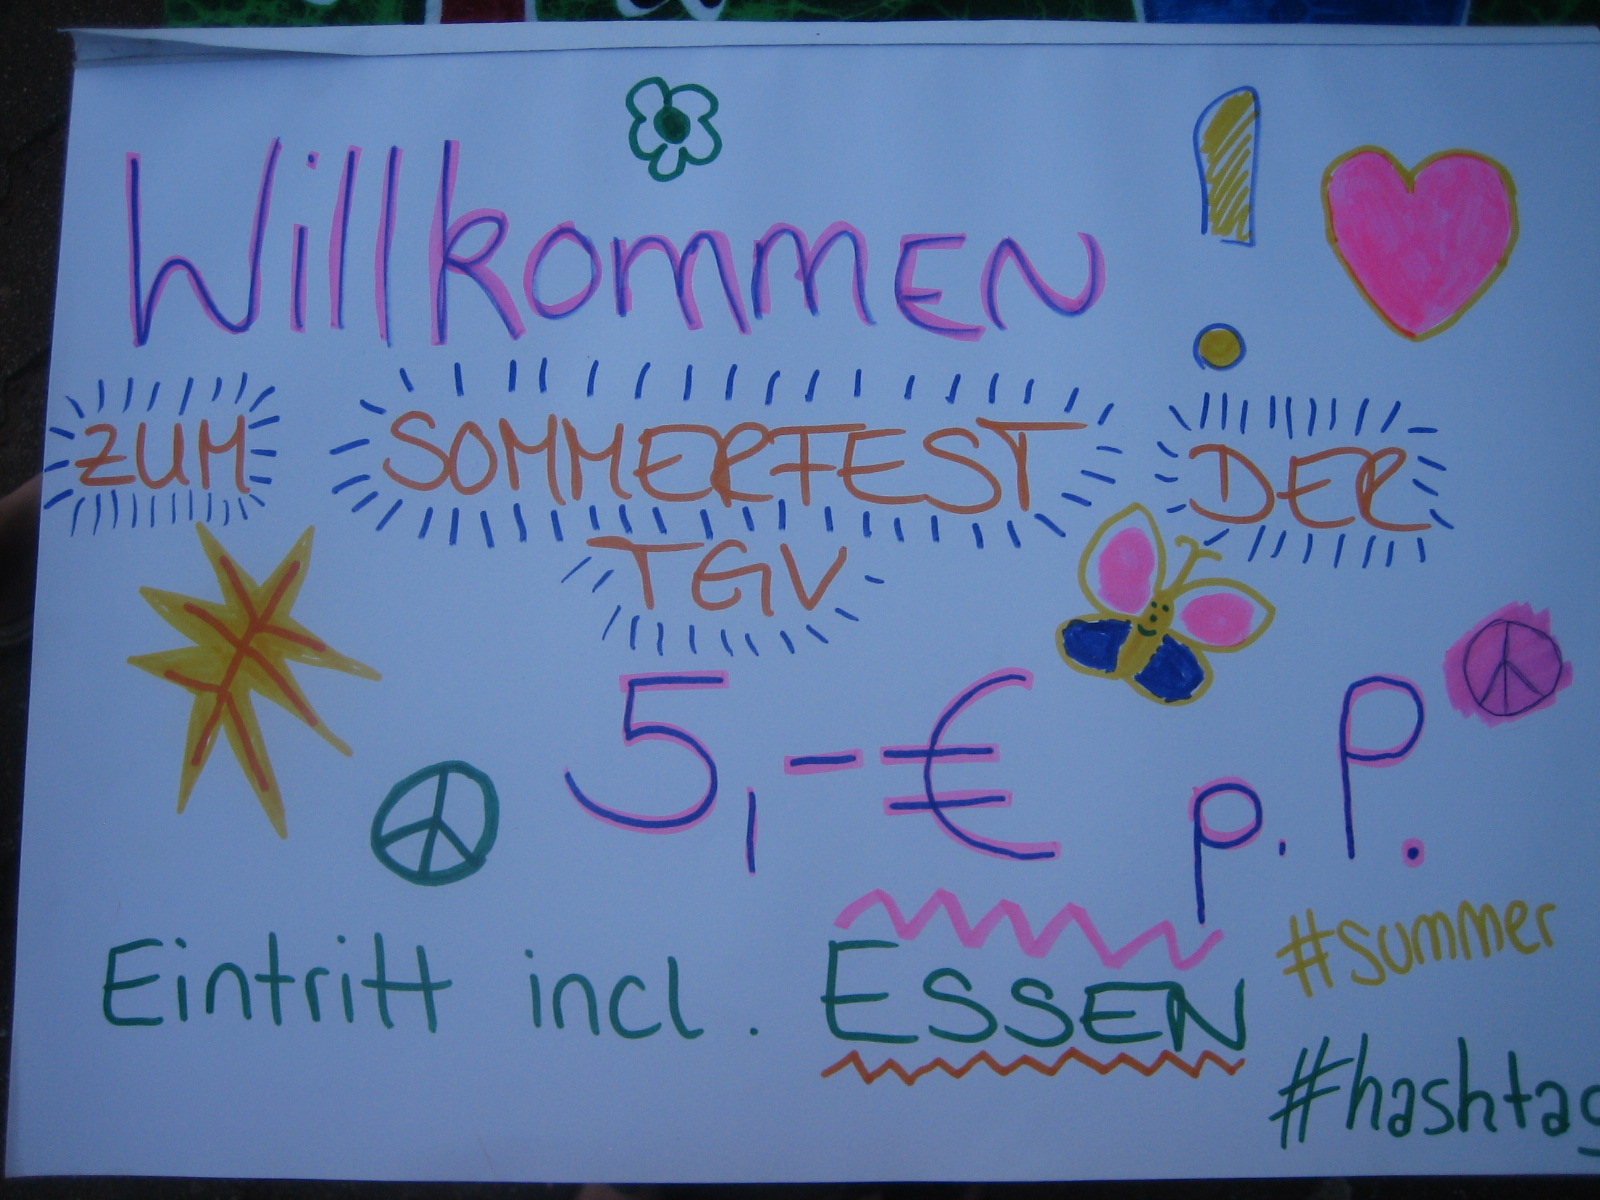 Willkommen!
ZUM SOMMERFEST DER
TGV
5,-€ p.P.
Eintritt incl. ESSEN
#summer
#hashtag